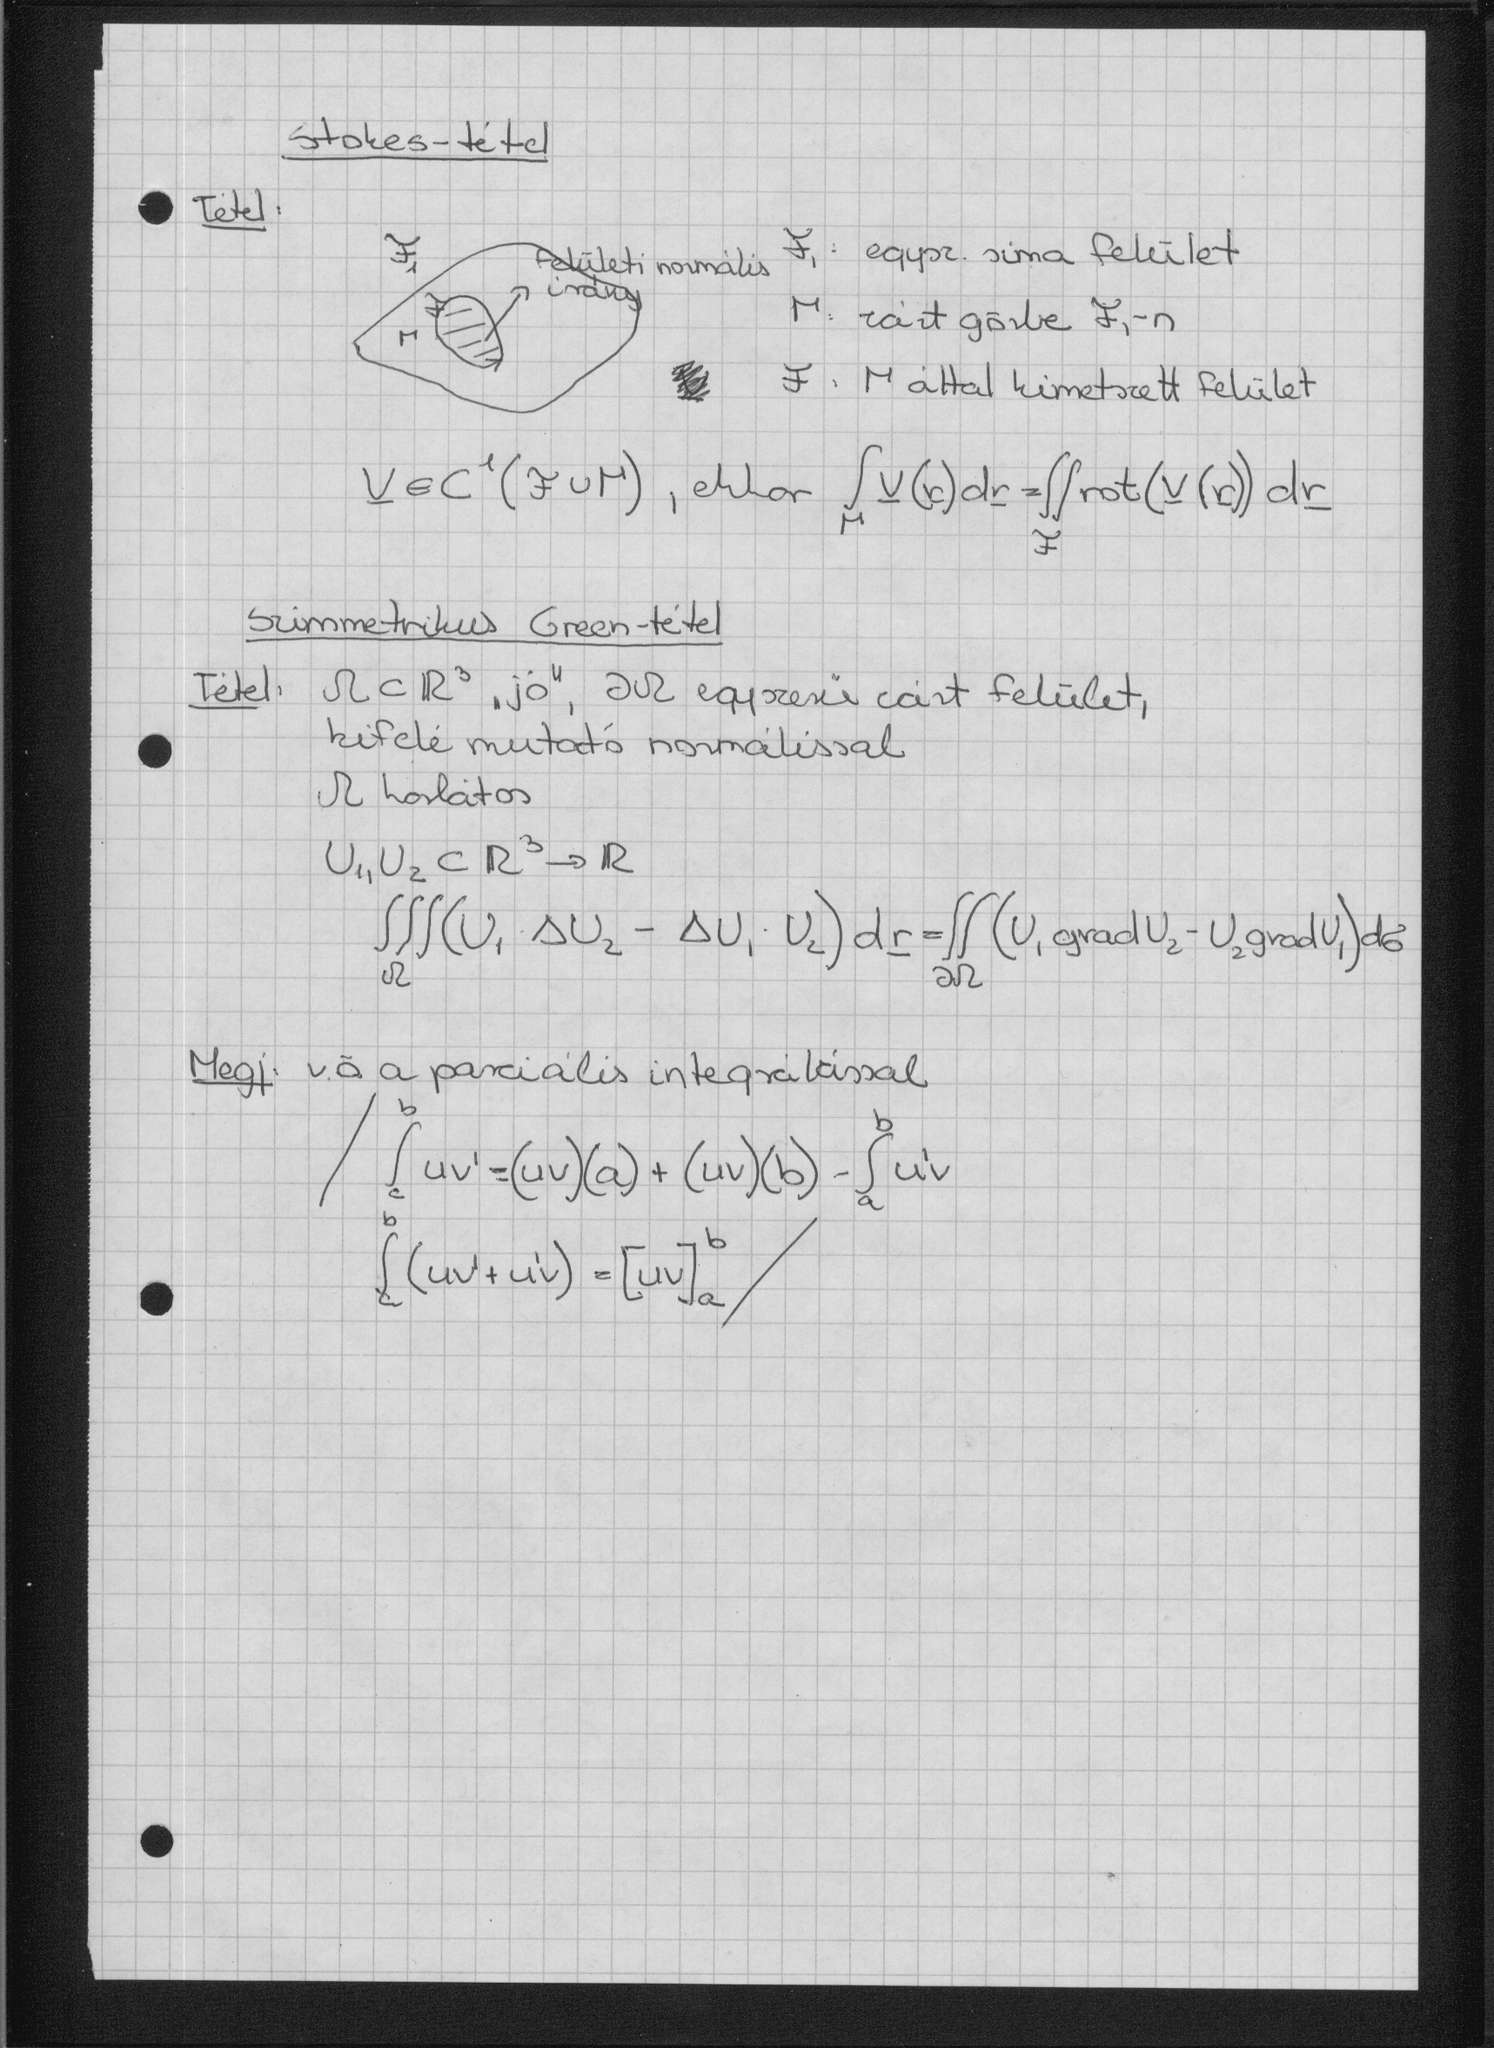 Stokes-tétel
Tétel:
F₁
felületi normális
irány
F
M
F₁: egysz. sima felület
M: zárt görbe F₁-n
F: M által kimetszett felület
V ∈ C¹(F∪M), ekkor ∫_M V(r)dr = ∬_F rot(V(r)) dr
Szimmetrikus Green-tétel
Tétel: Ω ⊂ ℝ³ „jó", ∂Ω egyszerű zárt felület,
kifelé mutató normálissal
Ω korlátos
U₁, U₂ ⊂ ℝ³ → ℝ
∭_Ω (U₁·ΔU₂ − ΔU₁·U₂) dr = ∬_∂Ω (U₁ grad U₂ − U₂ grad U₁) dσ
Megj: v.ö a parciális integrálással
∫_a^b uv' = (uv)(a) + (uv)(b) − ∫_a^b u'v
∫_a^b (uv' + u'v) = [uv]_a^b